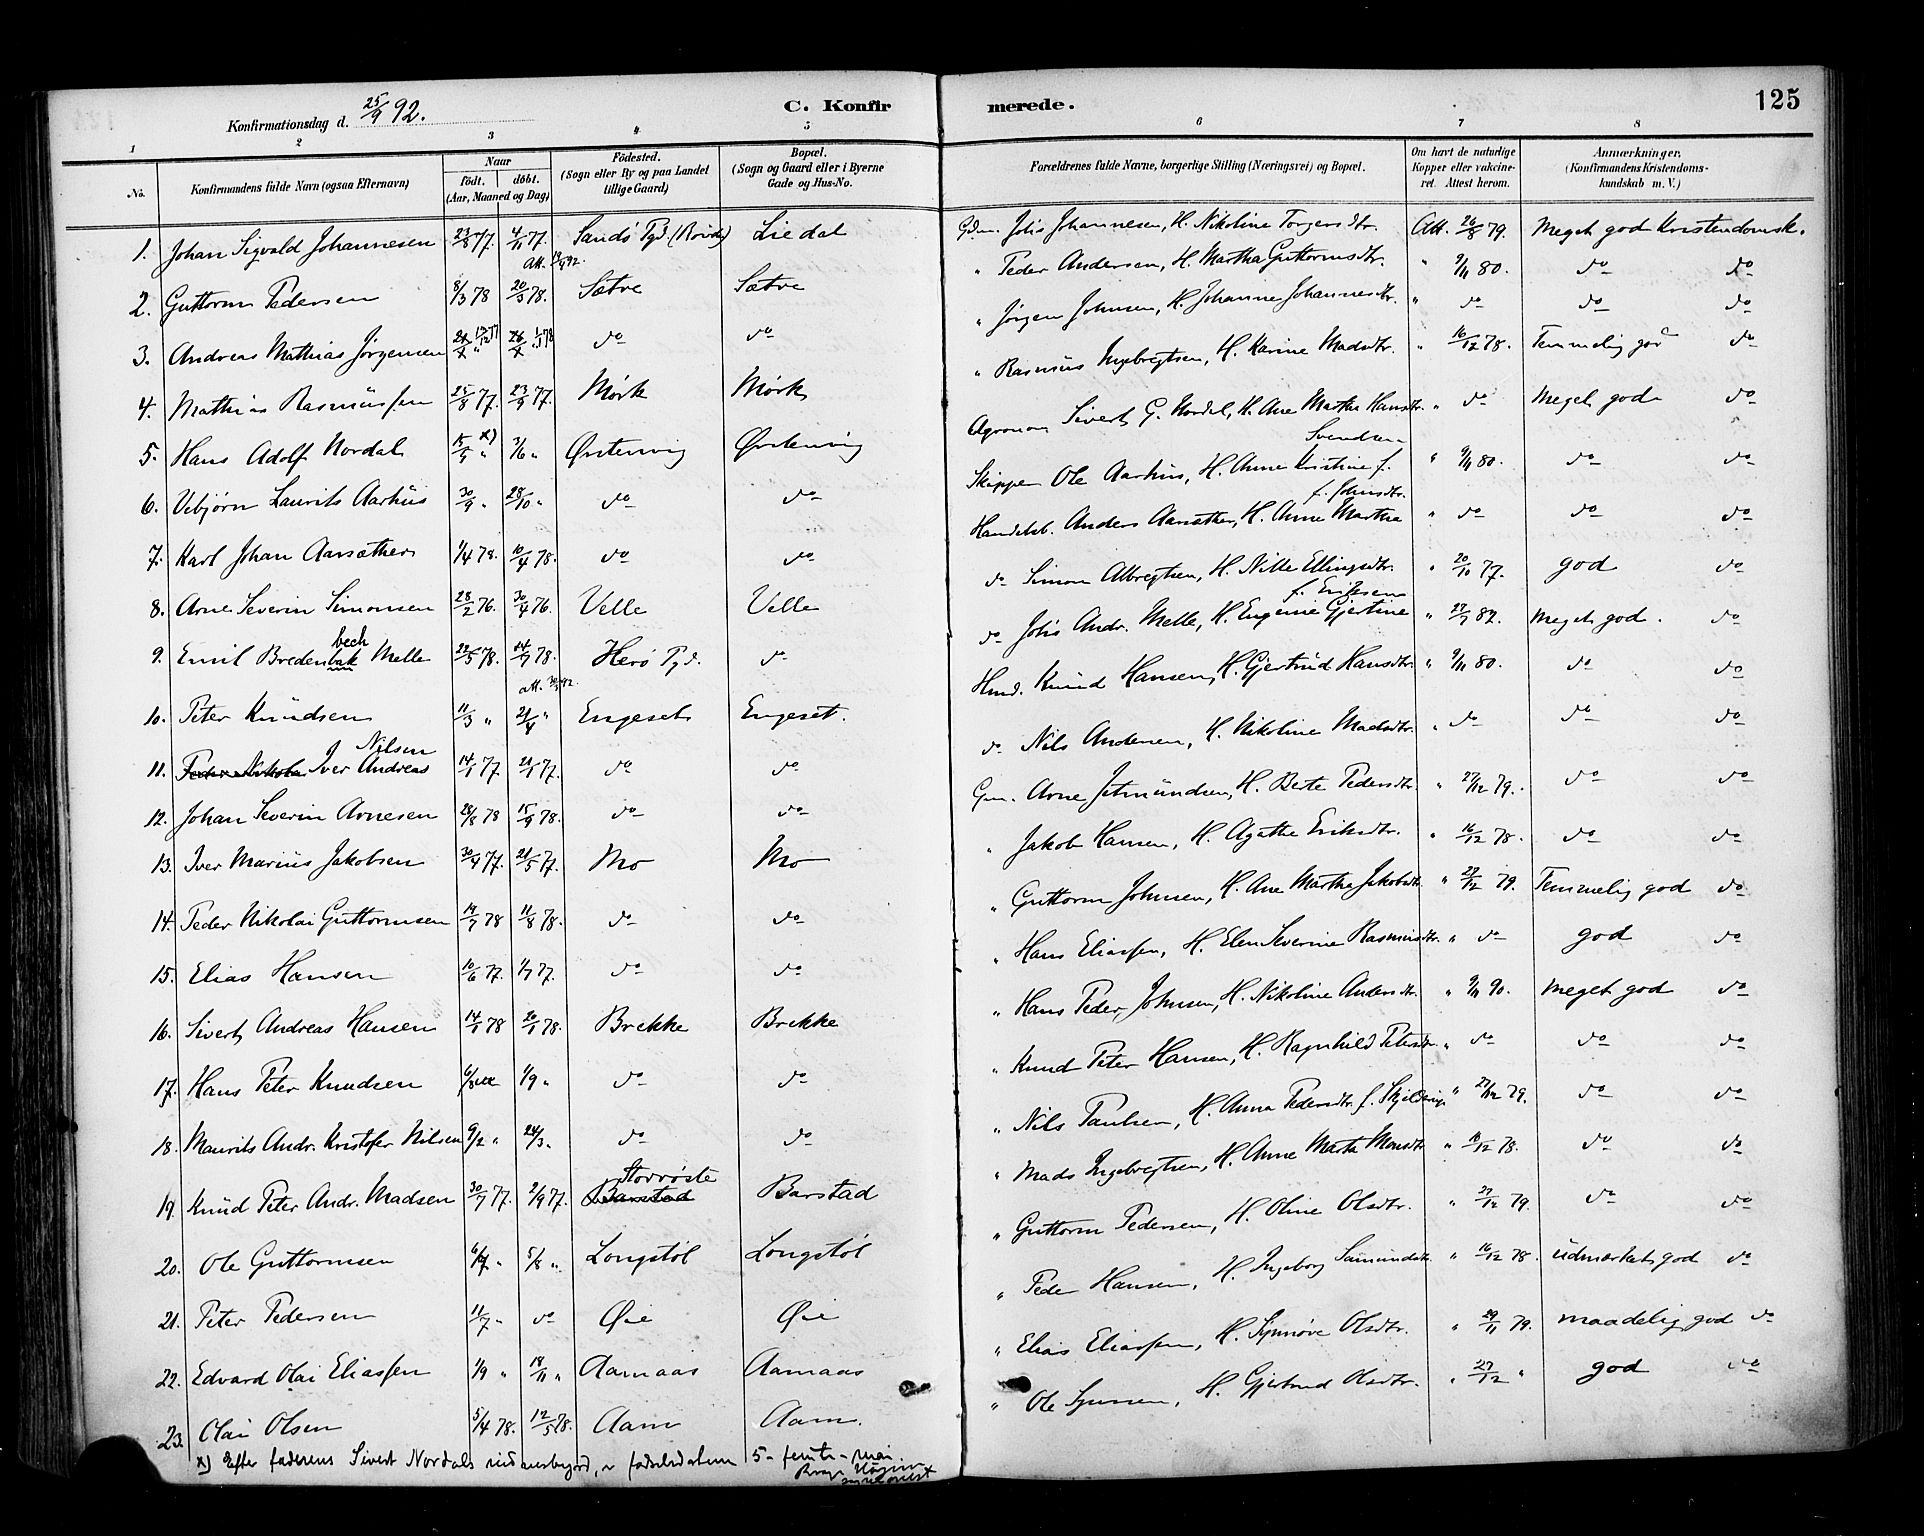 125
Konfirmationsdag d. 25/9 92.
C. Konfirmerede.
1 2 3 4 5 6 7 8
No.
Konfirmandens fulde Navn (ogsaa Efternavn)
Naar
født. døbt.
(Aar, Maaned og Dag)
Fødested.
(Sogn eller By og paa Landet tillige Gaard)
Bopæl.
(Sogn og Gaard eller i Byerne Gade og Hus-No.
Forældrenes fulde Navne, borgerlige Stilling (Næringsvei) og Bopæl.
Om havt de naturlige Kopper eller vakcineret. Attest herom.
Anmærkninger.
(Konfirmandens Kristendomskundskab m. V.)
1. Johan Sigvald Johannesen 23/8 77. 4/11 77. Sandø Pgd. Liedal Gdm. Johs Johannesen, H. Nikoline Torgersdtr. Att. 26/8 79. Meget god Kristendomsk.
2. Guttorm Pedersen 8/3 78 20/3 78. Sætre Sætre " Peder Andersen, H. Martha Guttormsdtr. " 9/11 80. do do
3. Andreas Mathias Jørgensen do do " Jørgen Johnsen, H. Johanne Johannesdtr. " do do do
4. Mathias Rasmussen 25/8 77. 23/9 77. Mørk Mørk " Rasmus Ingebregtsen, H. Karine Madsdtr. " 16/12 78. Temmelig god do
5. Hans Adolf Nordal 15/5 " x) 3/6 " Ørstenvig Ørstenvig Agronom Sivert G. Nordal, H. Ane Martha Hansdtr. " do Meget god do
6. Vebjørn Laurits Aarhus 30/9 " 28/10 " do do Skipper Ole Aarhus, H. Anne Kristine f. Svendsen " 9/11 80. do do
7. Karl Johan Aarsæther 1/4 78. 10/4 78. do do Handelsb. Anders Aarsæther, H. Anne Martha f. Johnsdtr. " do do do
8. Arne Severin Simonsen 28/2 76. 30/4 76. Velle Velle do Simon Albregtsen, H. Nille Ellingsdtr. " 20/10 77. god do
9. Emil Bredenbak bech Melle 22/5 78. 14/7 78. Herø Pgd. do do Johs Andr. Melle, H. Eugenie Gjertine f. Eriksen " 27/7 87. Meget god. do
10. Peter Knudsen 11/3 " 21/4 " Engeset Engeset. Hmd. Knud Hansen, H. Gjertrud Hansdtr. " 9/11 80. do do
11. Iver Andreas Nilsen 14/1 77. 21/1 77. do do do Nils Andersen, H. Nikoline Madsdtr. " do do do
12. Johan Severin Arnesen 28/8 78 15/9 78. do do Gm. Arne Jetmundsen, H. Berte Pedersdtr. " 27/12 79. do do
13. Iver Marius Jakobsen 30/4 77. 21/5 77. Mo Mo " Jakob Hansen, H. Agathe Eriksdtr. " 16/12 78. do do
14. Peder Nikolai Guttormsen 14/7 78 11/8 78. do do " Guttorm Johnsen, H. Ane Martha Jakobsdtr. " 27/12 79. Temmelig god do
15. Elias Hansen 10/6 77. 1/7 77. do do " Hans Eliassen, H. Elen Severine Rasmusdtr. " do god do
16. Sivert Andreas Hansen 14/1 78 20/1 78. Brekke Brekke " Hans Peder Johnsen, H. Nikoline Andersdtr. " 9/11 90. Meget god do
17. Hans Peter Knudsen 1/9 " do do " Knud Peter Hansen, H. Ragnhild Petersdtr. " do do do
18. Maurits Andr. Kristofer Nilsen 9/2 " 24/3 " do do " Nils Paulsen, H. Anna Pedersdtr. f. Skjelderup " 27/12 79. do do
19. Knud Peter Andr. Madsen 30/7 77. 2/9 77. Barstad Storrøste Barstad " Mads Ingebregtsen, H. Anne Marta Monsdtr " 16/12 78. do do
20. Ole Guttormsen 5/8 " Longstøl Longstøl " Guttorm Pedersen, H. Oline Olsdtr. " 27/12 79. do do
21. Peter Pedersen 11/7 " do Øie Øie " Peder Hansen, H. Ingeborg Samundsdtr. " 16/12 78. udmærket god do
22. Edvard Olai Eliassen 1/9 " 18/11 " Aamaas Aamaas " Elias Eliassen, H. Synnøve Olsdtr. " 29/11 79. maadelig god do
23. Olai Olsen 5/4 78. 12/5 78. Aam Aam. " Ole Synnesen, H. Gjertrud Olsdtr. " 27/12 " god do
x) Efter faderens Sivert Nordals vidnesbyrd, er fødselsdatum 5- femte- mai